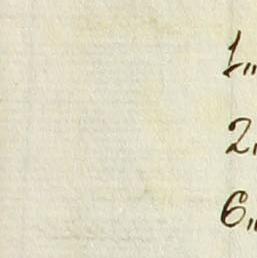 1„
2„
6„